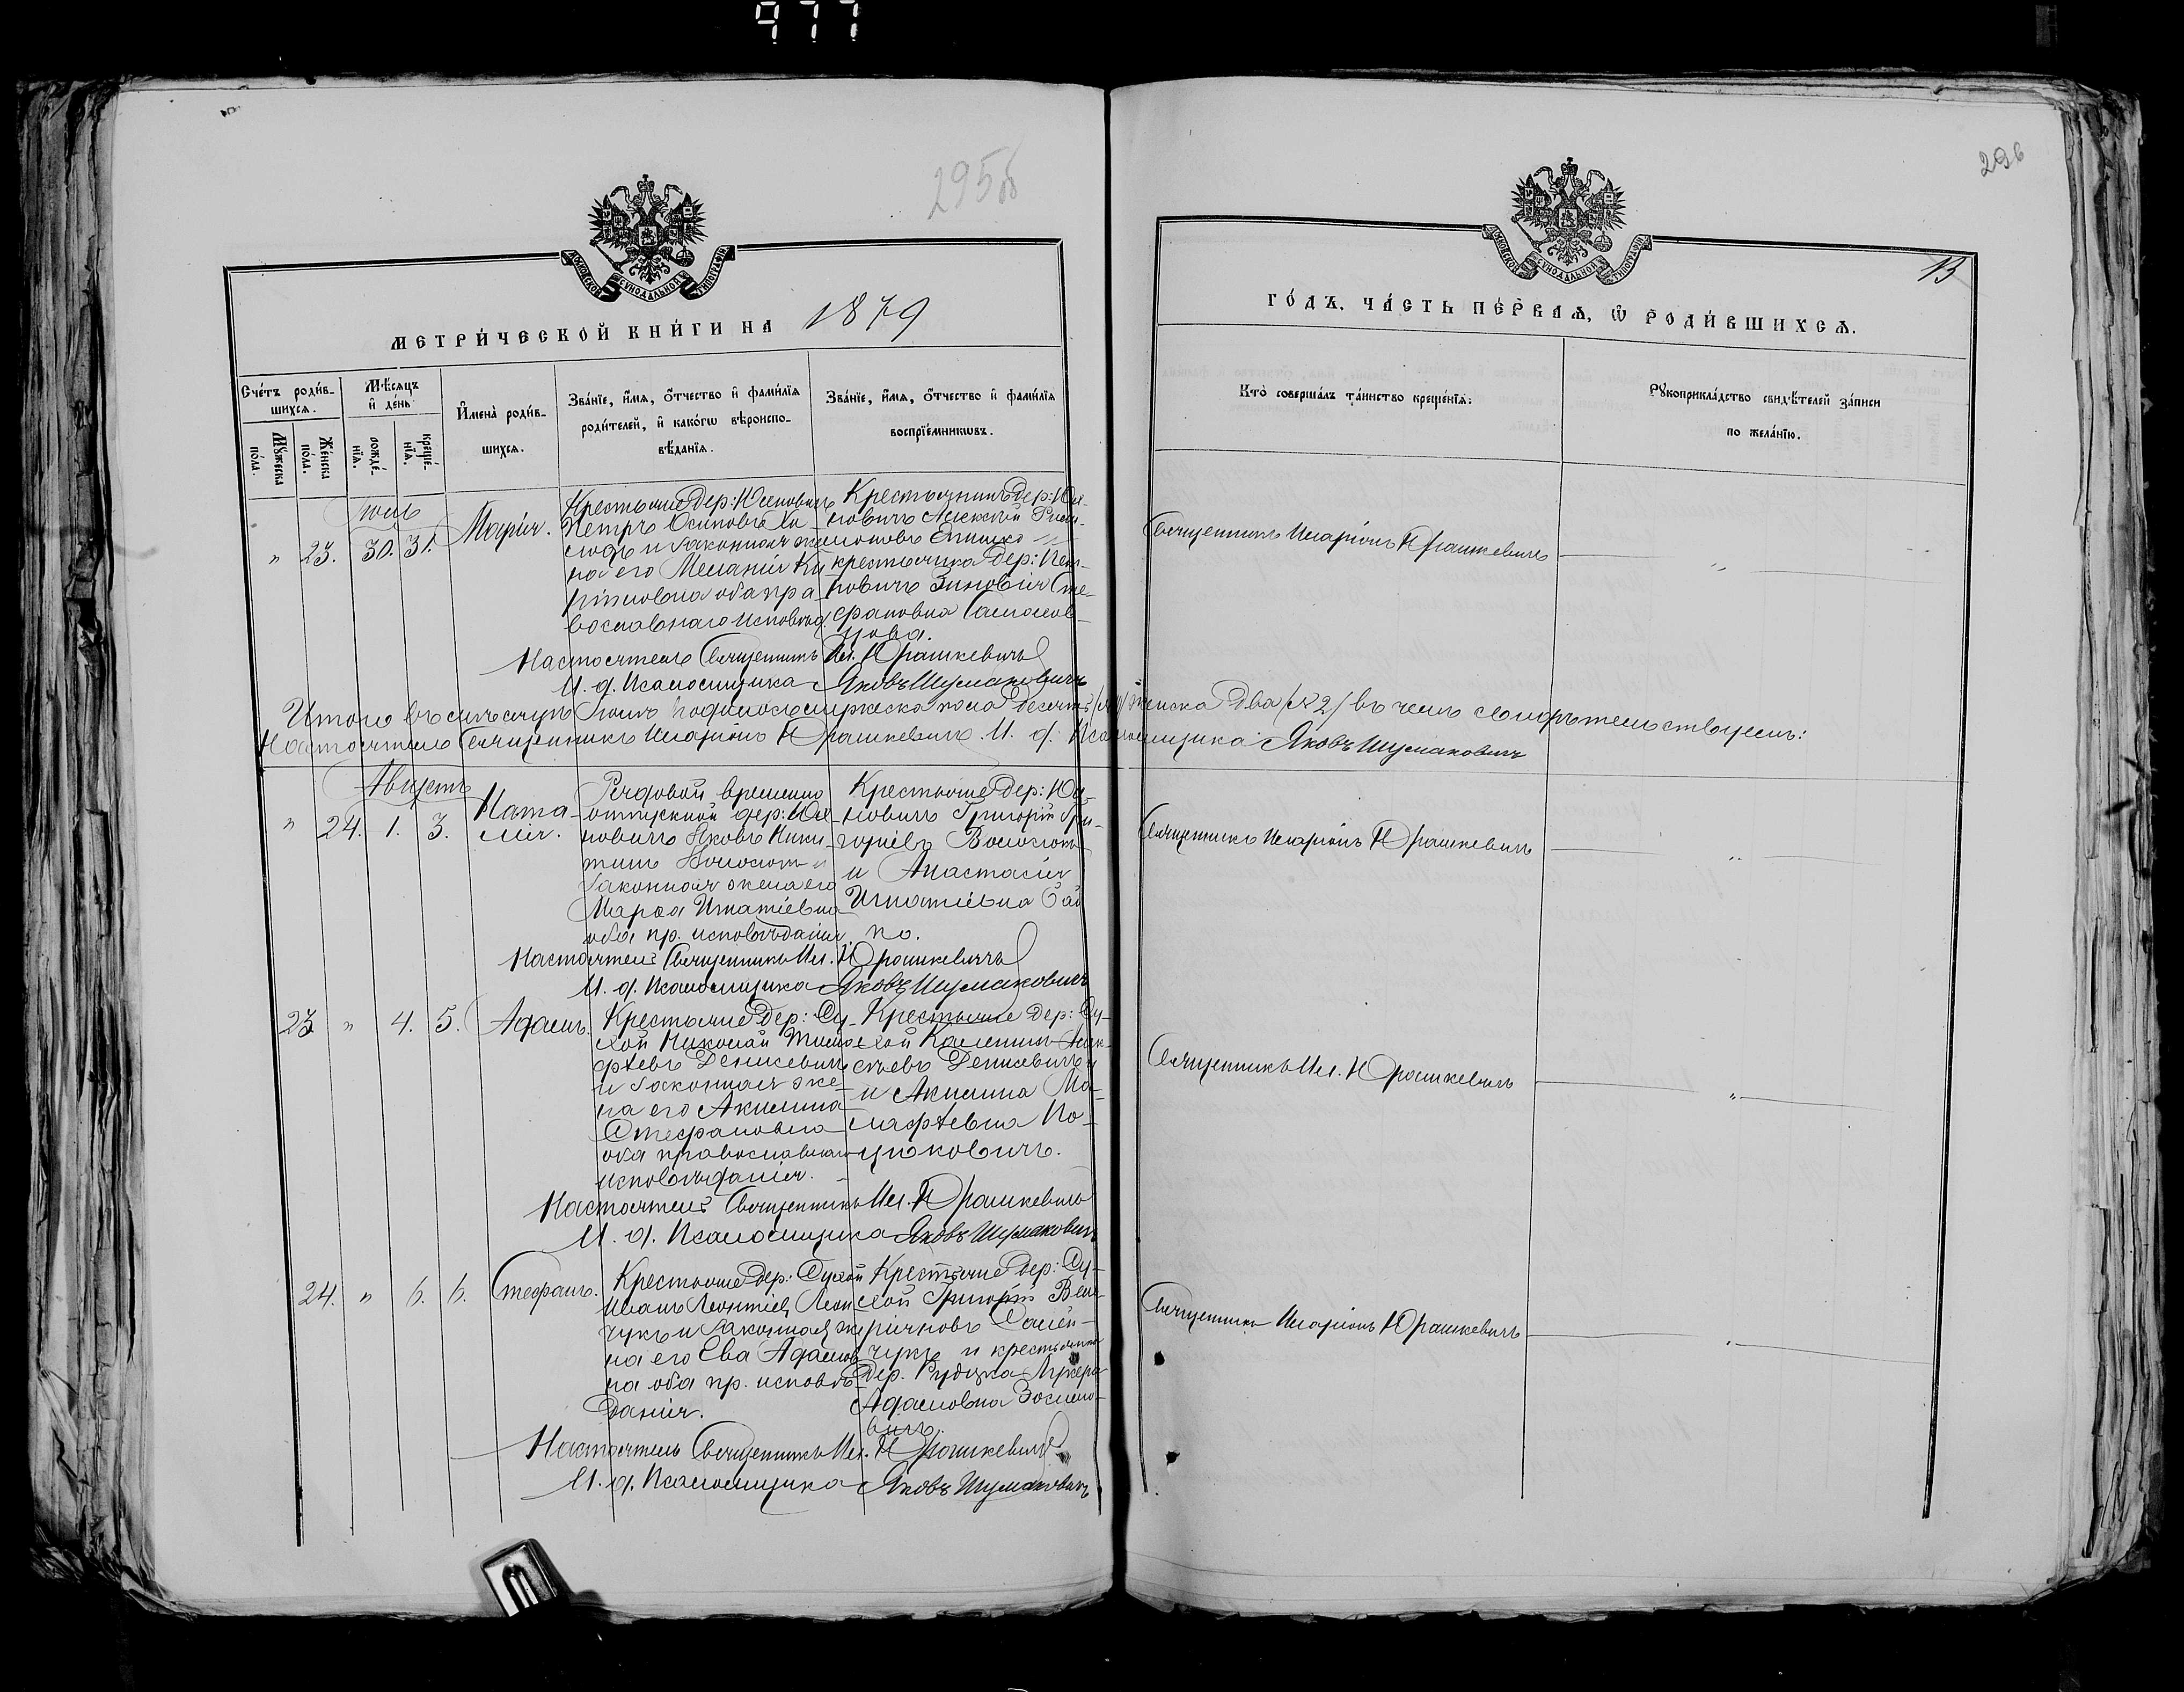 977
295об
296
13
МОСКОВСКОЙ СѴНОДАЛЬНОЙ ТИПОГРАФІИ
МОСКОВСКОЙ СѴНОДАЛЬНОЙ ТИПОГРАФІИ
МЕТРИ́ЧЕСКОЙ КНИ́ГИ НА 1879
ГО́ДЪ, ЧА́СТЬ ПЕ́РВАѦ, Ѡ҆ РОДИ́ВШИХСѦ.
Сче́тъ роди́в-
шихсѧ.
Мꙋ́жеска
по́ла.
Же́нска
по́ла.
Мѣ́сѧцъ
и҆ де́нь.
рожде́-
нїѧ.
креще́-
нїѧ.
И҆мена̀ роди́в-
шихсѧ.
Зва́нїе, и҆́мѧ, о҆́тчество и҆ фами́лїѧ
роди́телей, и҆ како́гѡ вѣроиспо-
вѣ́данїѧ.
Зва́нїе, и҆́мѧ, о҆́тчество и҆ фами́лїѧ
воспрїе́мникѡвъ.
Кто̀ соверша́лъ та́инство креще́нїѧ:
Рꙋкоприкла́дство свидѣ́телей за́писи
по жела́нїю.
Іюль
" 23. 30. 31.
Марія.
Крестьяне дер:
Петръ Осиповъ
и законная же-
на его Меланія Ки-
рилловна оба пра-
вославнаго исповѣд.
Крестьянинъ дер: Юх-
новичъ Алексѣй
крестьянка дер:
новичъ Зиновія Сте-
фановна
Священникъ Иларіонъ Юрашкевичъ
Настоятель Священникъ Ил. Юрашкевичъ
И. д. Псаломщика Яковъ Шумаковичъ
Итого въ мѣсяцѣ Іюлѣ родилось мужеска пола десять женска два /2/ въ чемъ свидѣтельствуемъ:
Настоятель Священникъ Иларіонъ Юрашкевичъ И. д. Псаломщика Яковъ Шумаковичъ
Августъ
" 24. 1. 3.
Ната-
лія.
Рядовой временно
отпускной дер: Юх-
новичъ Яковъ Ники-
тинъ и
законная жена его
Марѳа Игнатіевна
оба пр. исповѣданія.
Крестьяне дер: Юх-
новичъ Григорій Гри-
горіевъ
и Анастасія
Игнатіевна
Священникъ Иларіонъ Юрашкевичъ
Настоятель Священникъ Ил. Юрашкевичъ
И. д. Псаломщика Яковъ Шумаковичъ
23 " 4. 5.
Адамъ.
Крестьяне дер: Су-
хой Николай Тимо-
фѣевъ Денисевичъ
и законная же-
на его Акилина
Стефановна
оба православнаго
исповѣданія.
Крестьяне дер: Су-
хой
Денисевичъ
и Акилина Ма-
Священникъ Ил. Юрашкевичъ
Настоятель Священникъ Ил. Юрашкевичъ
И. д. Псаломщика Яковъ Шумаковичъ
24. " 6. 6.
Стефанъ.
Крестьяне дер: Сухой
Иванъ Леонтіев
и законная же-
на его Ева Адамов-
на оба пр. исповѣ-
данія.
Крестьяне дер: Су-
хой Григорій
и крестьянка
дер. Рудска
Адамовна
Священникъ Иларіонъ Юрашкевичъ
Настоятель Священникъ Ил. Юрашкевичъ
И. д. Псаломщика Яковъ Шумаковичъ